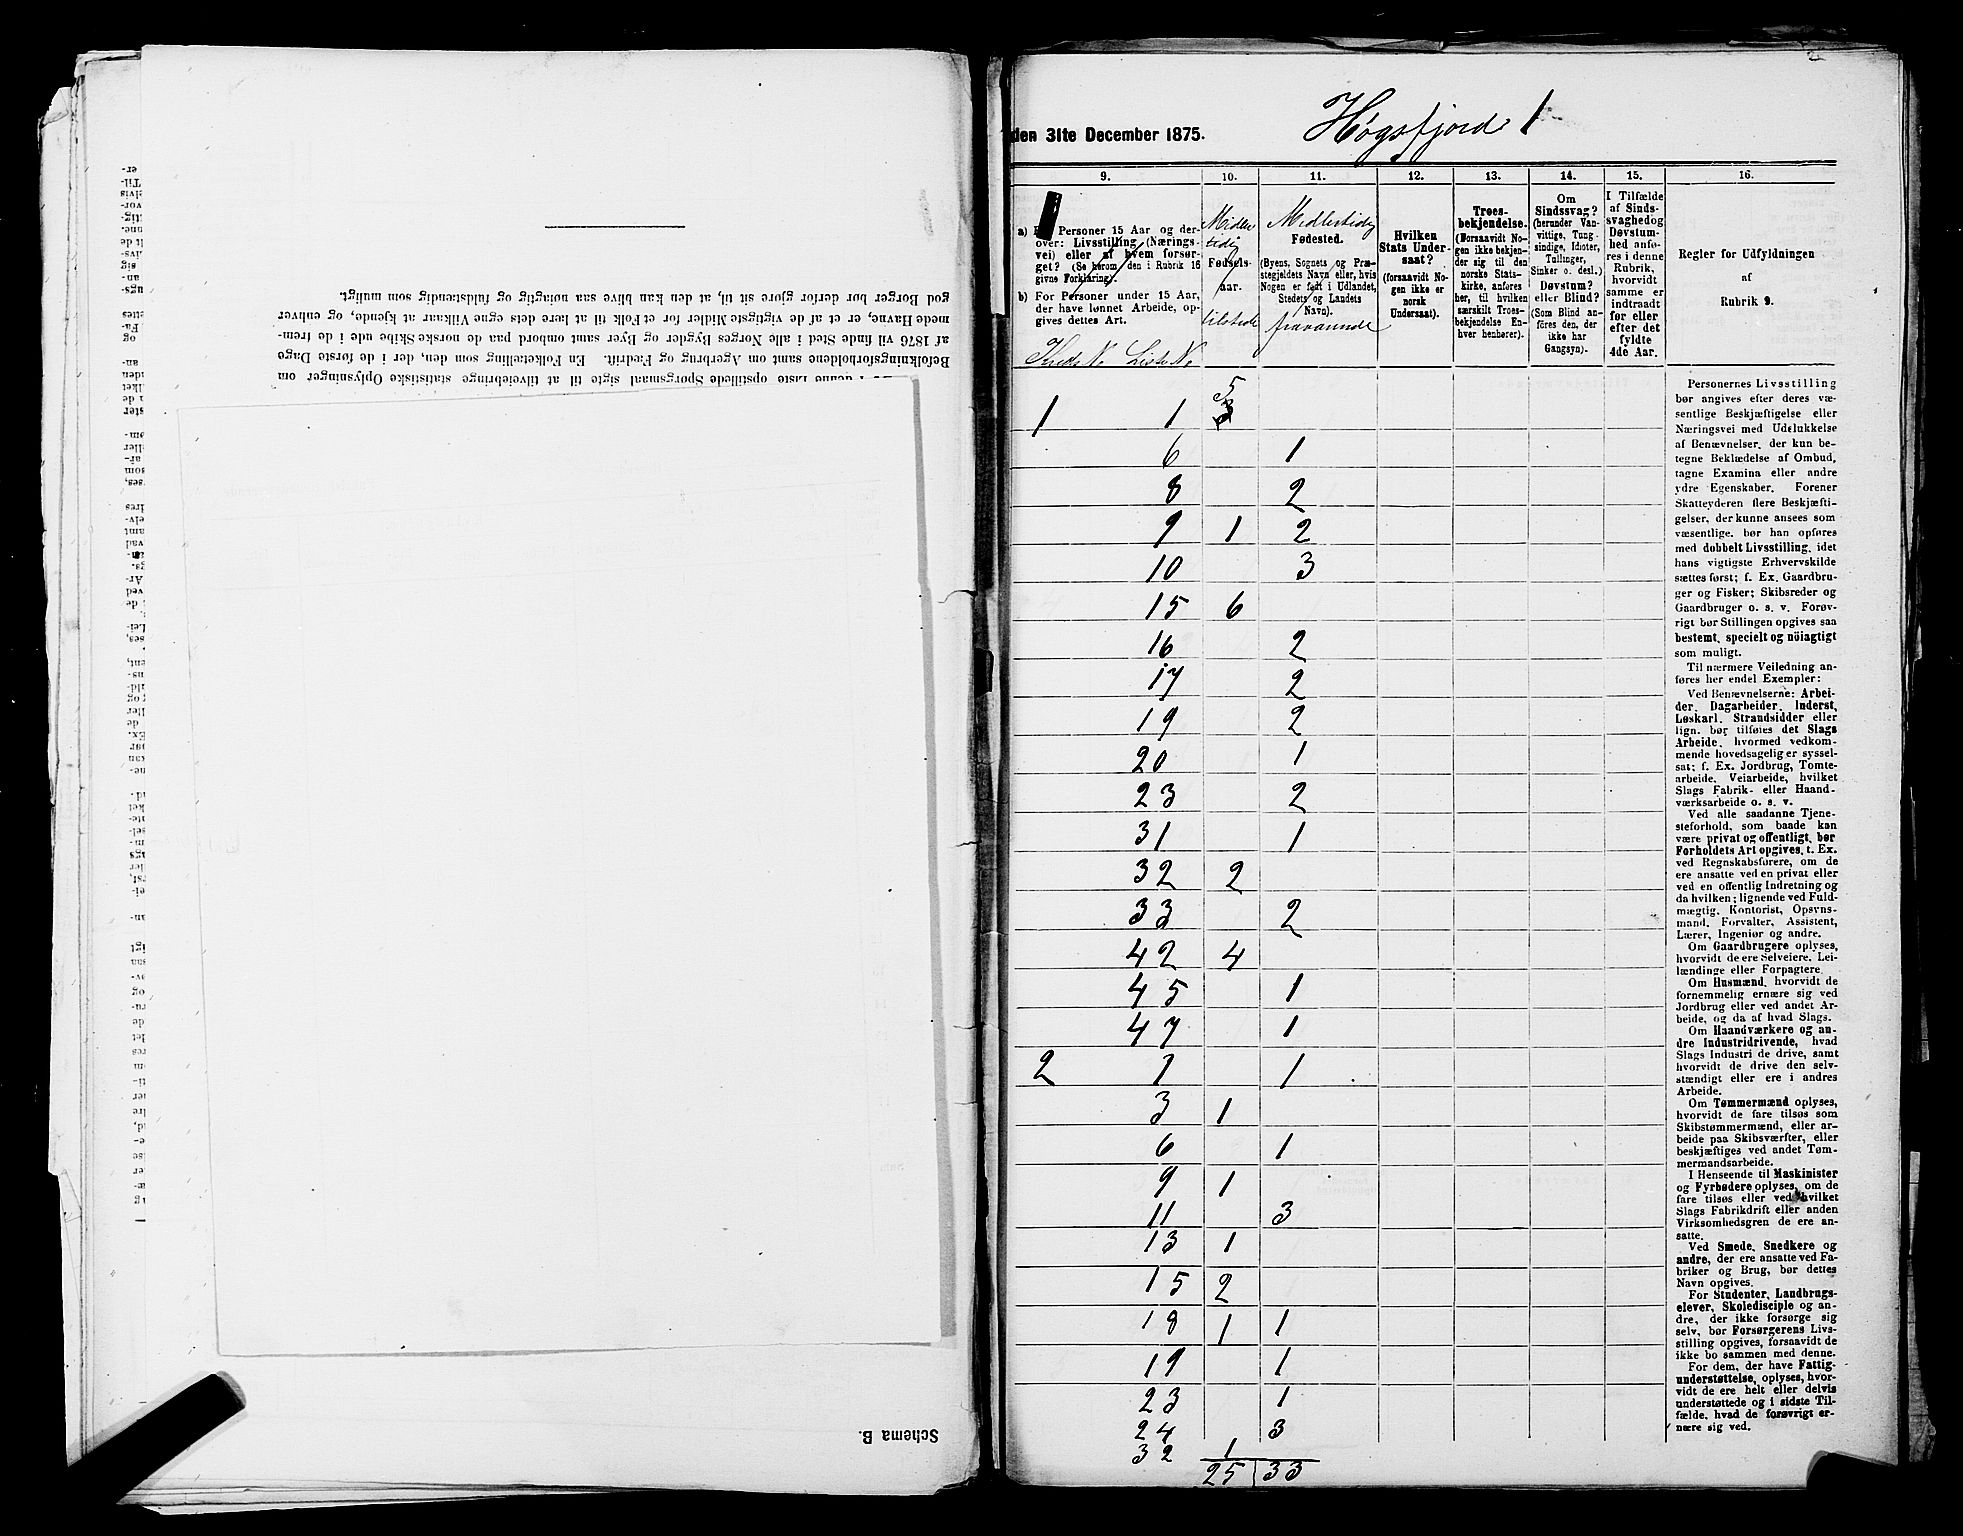 den 31te December 1875.
Høgsfjord 1
9. 10. 11. 12. 13. 14. 15. 16.
a) Personer 15 Aar og der-
over: Livsstilling (Nærings-
vei) eller af hvem forsør-
get? (Se herom den i Rubrik 16
givne Forklaring).
b) For Personer under 15 Aar,
der have lønnet Arbeide, op-
gives dettes Art.
Kreds No Liste No
Midler
tidig
Fødsels-
aar.
tilstede
Midlertidig
Fødested.
(Byens, Sognets og Præ-
stegjeldets Navn eller, hvis
Nogen er født i Udlandet,
Stedets og Landets
Navn).
fraværende
Hvilken
Stats Under-
saat?
(forsaavidt No-
gen ikke er
norsk
Undersaat).
Troes-
bekjendelse.
(Forsaavidt No-
gen ikke bekjen-
der sig til den
norske Stats-
kirke, anføres
her, til hvilken
særskilt Troes-
bekjendelse En-
hver henhører).
Om
Sindssvag?
(herunder Van-
vittige, Tung-
sindige, Idioter,
Tullinger,
Sinker o. desl.)
Døvstum?
eller Blind?
(Som Blind an-
føres den, der
ikke har
Gangsyn).
I Tilfælde
af Sinds-
svaghed og
Døvstum-
hed anfø-
res i denne
Rubrik,
hvorvidt
samme er
indtraadt
før eller
efter det
fyldte
4de Aar.
Regler for Udfyldningen
af
Rubrik 9.
1 1 3 5
6 1
8 2
9 1 2
10 3
15 6
16 2
17 2
19 2
20 1
23 2
31 1
32 2
33 2
42 4
45 1
47 1
2 1 1
3 1
6 1
9 1
11 3
13 1
15 2
18 1 1
19 1
23 1
24 3
32 1
25 33
Personernes Livsstilling
bør angives efter deres væ-
sentlige Beskjæftigelse eller
Næringsvei med Udelukkelse
af Benævnelser, der kun be-
tegne Beklædelse af Ombud,
tagne Examina eller andre
ydre Egenskaber. Forener
Skatteyderen flere Beskjæfti-
gelser, der kunne ansees som
væsentlige, bør han opføres
med dobbelt Livsstilling, idet
hans vigtigste Erhvervskilde
sættes først; f. Ex. Gaardbru-
ger og Fisker; Skibsreder og
Gaardbruger o. s. v. Forøv-
rigt bør Stillingen opgives saa
bestemt, specielt og nöiagtigt
som muligt.
Til nærmere Veiledning an-
føres her endel Exempler:
Ved Benævnelserne: Arbei-
der, Dagarbeider, Inderst,
Løskarl, Strandsidder eller
lign. bør tilføies det Slags
Arbeide, hvormed vedkom-
mende hovedsagelig er syssel-
sat; f. Ex. Jordbrug, Tomte-
arbeide, Veiarbeide, hvilket
Slags Fabrik- eller Haand-
værksarbeide o. s. v.
Ved alle saadanne Tjene-
steforhold, som baade kan
være privat og offentligt, bør
Forholdets Art opgives, t. Ex.
ved Regnskabsførere, om de
ere ansatte ved en privat eller
ved en offentlig Indretning og
da hvilken; lignende ved Fuld-
mægtig, Kontorist, Opsyns-
mand, Forvalter, Assistent,
Lærer, Ingeniør og andre.
Om Gaardbrugere oplyses,
hvorvidt de ere Selveiere, Lei-
lændinge eller Forpagtere.
Om Husmænd, hvorvidt de
fornemmelig ernære sig ved
Jordbrug eller ved andet Ar-
beide, og da af hvad Slags.
Om Haandværkere og an-
dre Industridrivende, hvad
Slags Industri de drive, samt
hvorvidt de drive den selv-
stændigt eller ere i andres
Arbeide.
Om Tømmermænd oplyses,
hvorvidt de fare tilsøs som
Skibstømmermænd, eller ar-
beide paa Skibsværfter, eller
beskjæftiges ved andet Tøm-
mermandsarbeide.
I Henseende til Maskinister
og Fyrbødere oplyses, om de
fare tilsøs eller ved hvilket
Slags Fabrikdrift eller anden
Virksomhedsgren de ere an-
satte.
Ved Smede, Snedkere og
andre, der ere ansatte ved Fa-
briker og Brug, bør dettes
Navn opgives.
For Studenter, Landbrugs-
elever, Skoledisciple og an-
dre, der ikke forsørge sig
selv, bør Forsørgerens Livs-
stilling opgives, forsaavidt de
ikke bo sammen med denne.
For dem, der have Fattig-
understøttelse, oplyses, hvor-
vidt de ere helt eller delvis
understøttede og i sidste Til-
fælde, hvad de forøvrigt er-
nære sig ved.
Schema B.
denne Liste opstillede Spørgsmaal sigte til at tilveiebringe statistiske Oplysninger om
Befolkningsforholdene samt om Agerbrug og Fædrift. En Folketælling som den, der i de første Dage
af 1876 vil finde Sted i alle Norges Bygder og Byer samt ombord paa de norske Skibe ude i de frem-
mede Havne, er et af de vigtigste Midler for et Folk til at lære dets egne Vilkaar at kjende, og enhver
god Borger bør derfor gjøre sit til, at den kan blive saa nøiagtig og fuldstændig som muligt.